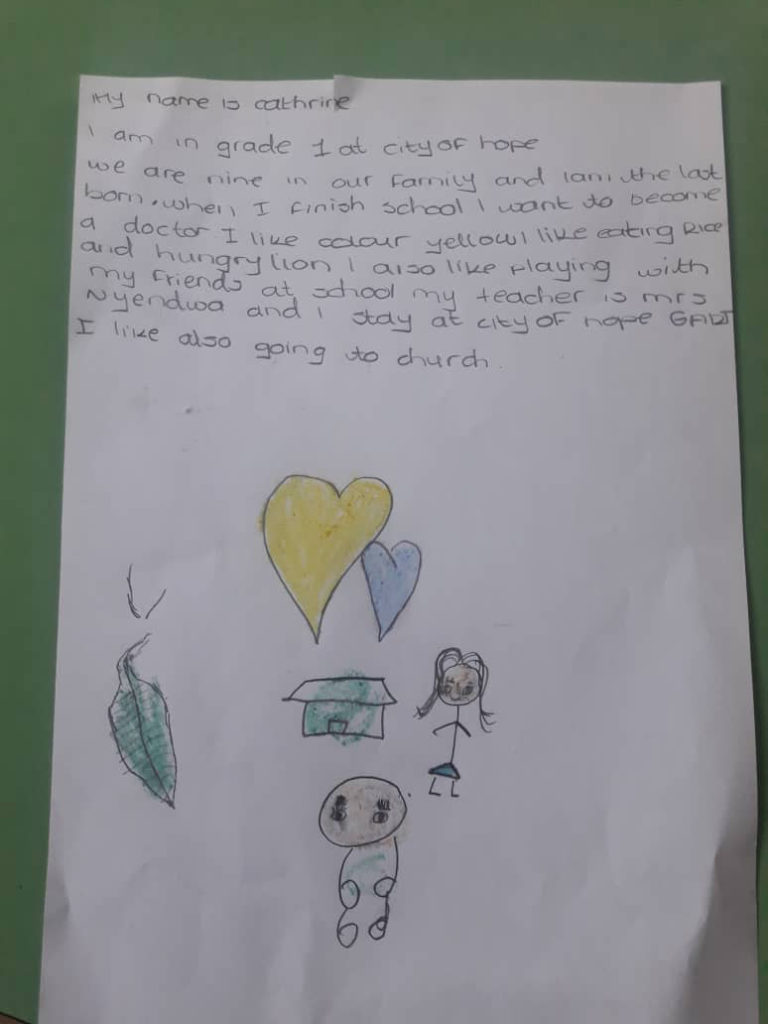 My name is cathrine
I am in grade 1 at city of hope
we are nine in our family and I am the last
born. when I finish school I want to become
a doctor I like colour yellow I like eating Rice
and hungry lion I also like playing with
my friends at school my teacher is mrs
Nyendwa and I stay at city of hope
I like also going to church.